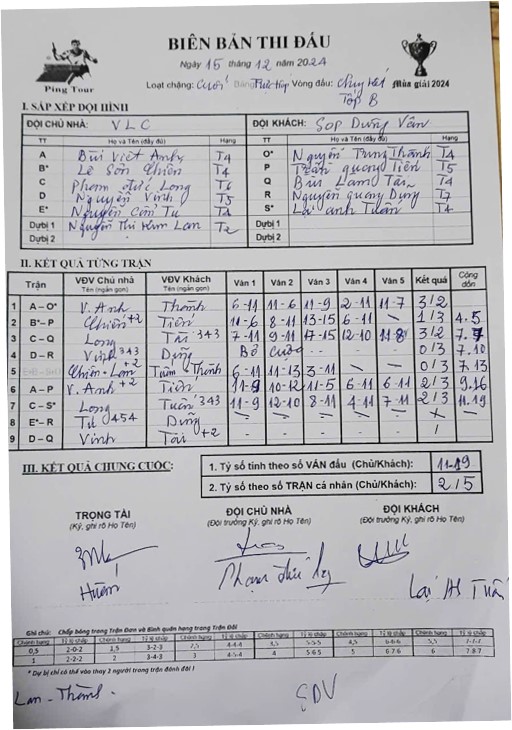 BIÊN BẢN THI ĐẤU
Ping Tour
Ngày 15 tháng 12 năm 2024
Loạt chặng: Cuối Bảng Vòng đấu: Mùa giải 2024
I. SẮP XẾP ĐỘI HÌNH
ĐỘI CHỦ NHÀ: VLC ĐỘI KHÁCH: Sop Dưỡng Vân
TT Họ và Tên (đầy đủ) Hạng TT Họ và Tên (đầy đủ) Hạng
A Bùi Việt Anh T4 O* Nguyễn Trung Thành T4
B* Lê Sơn Chiến T4 P Trần Quang Tiến T5
C Phạm Đức Long T6 Q Bùi Lam Tài T4
D Nguyễn Vinh T5 R Nguyễn Quang Dũng T7
E* Nguyễn Cẩm Tú T4 S* Lại Anh Tuấn T4
Dựbị 1 Nguyễn Thị Kim Lan T2 Dựbị 1
Dựbị 2 Dựbị 2
II. KẾT QUẢ TỪNG TRẬN
Trận VĐV Chủ nhà (Tên ngắn gọn) VĐV Khách (Tên ngắn gọn) Ván 1 Ván 2 Ván 3 Ván 4 Ván 5 Kết quả Cộng dồn
1 A – O* V. Anh Thành 6-11 11-6 11-9 2-11 11-7 3/2
2 B*– P Chiến +2 Tiến 11-6 8-11 13-15 6-11 — 1/3 4.5
3 C – Q Long Tài 343 7-11 9-11 17-15 12-10 11-8 3/2 7.7
4 D – R Vinh 343 Dũng Bỏ cuộc - - - 0/3 7.10
5 Chiến + Lan +2 Tuấn Thành 6-11 11-13 3-11 - - 0/3 7.13
6 A – P V. Anh +2 Tiến 11-9 10-12 11-5 6-11 6-11 2/3 9.16
7 C – S* Long Tuấn 343 11-9 12-10 8-11 4-11 7-11 2/3 11.19
8 E*– R Tú 454 Dũng — — — — —
9 D – Q Vinh Tài +2 - - - - -
III. KẾT QUẢ CHUNG CUỘC:
1. Tỷ số tính theo số VÁN đấu (Chủ/Khách): 11-19
2. Tỷ số theo số TRẬN cá nhân (Chủ/Khách): 2/5
TRỌNG TÀI ĐỘI CHỦ NHÀ ĐỘI KHÁCH
(Ký, ghi rõ Họ Tên) (Đội trưởng Ký, ghi rõ Họ Tên) (Đội trưởng Ký, ghi rõ Họ Tên)
Phạm Đức Long
Lại Anh Tuấn
Ghi chú: Chấp bóng trong Trận Đơn và Bình quân hạng trong Trận Đôi
Chênh hạng Tỷ lệ chấp Chênh hạng Tỷ lệ chấp Chênh hạng Tỷ lệ chấp Chênh hạng Tỷ lệ chấp Chênh hạng Tỷ lệ chấp Chênh hạng Tỷ lệ chấp
0,5 2-0-2 1,5 3-2-3 2,5 4-4-4 3,5 5-5-5 4,5 6-6-6 5,5 7-7-7
1 2-2-2 2 3-4-3 3 4-5-4 4 5-6-5 5 6-7-6 6 7-8-7
* Dự bị chỉ có thể thay 2 người trong trận đánh đôi !
Lan - Thành.